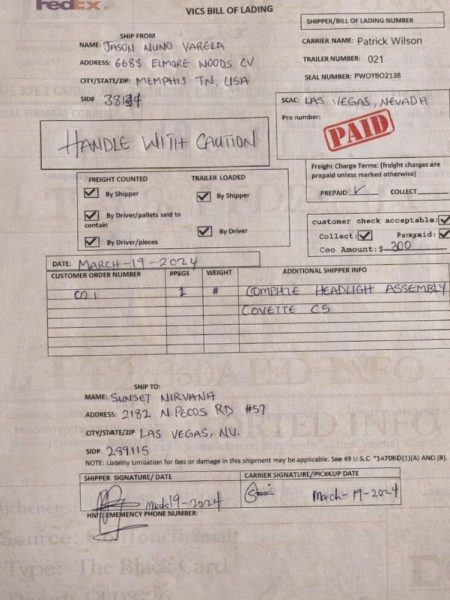 FedEx
VICS BILL OF LADING
SHIP FROM
NAME: JASON NUNO VARELA
ADDRESS: 6688 ELMORE WOODS CV
CITY/STATE/ZIP: MEMPHIS TN, USA
SID#
HANDLE WITH CAUTION
SHIPPER/BILL OF LADING NUMBER
CARRIER NAME: Patrick Wilson
TRAILER NUMBER: 021
SEAL NUMBER: PWOYBO2138
SCAC: LAS VEGAS, NEVADA
Pro number:
PAID
Freight Charge Terms: (freight charges are
prepaid unless marked otherwise)
PREPAID COLLECT
FREIGHT COUNTED TRAILER LOADED
By Shipper By Shipper
By Driver/pallets said to
contain
By Driver
By Driver/pieces
customer check acceptable:
Collect: Packpaid:
Coo Amount:$ 300
DATE: MARCH-19-2024
CUSTOMER ORDER NUMBER PPEGS WEIGHT ADDITIONAL SHIPPER INFO
001 1 # COMPLTE HEADLIGH ASSEMBLY
COVETTE C5
SHIP TO:
NAME: SUNSET NIRVANA
ADDRESS: 2182 N PECOS RD #57
CITY/STATE/ZIP LAS VEGAS, NV.
SID# 299115
NOTE: Liability Limisation for lass or damage in this shipment may be applicable. See 49 U.S.C.
SHIPPER SIGNATURE/ DATE CARRIER SIGNATURE/PICKUP DATE
March 19-2024 March-19-2024
EMERGENCY PHONE NUMBER:
Source:
Type: The Black Card